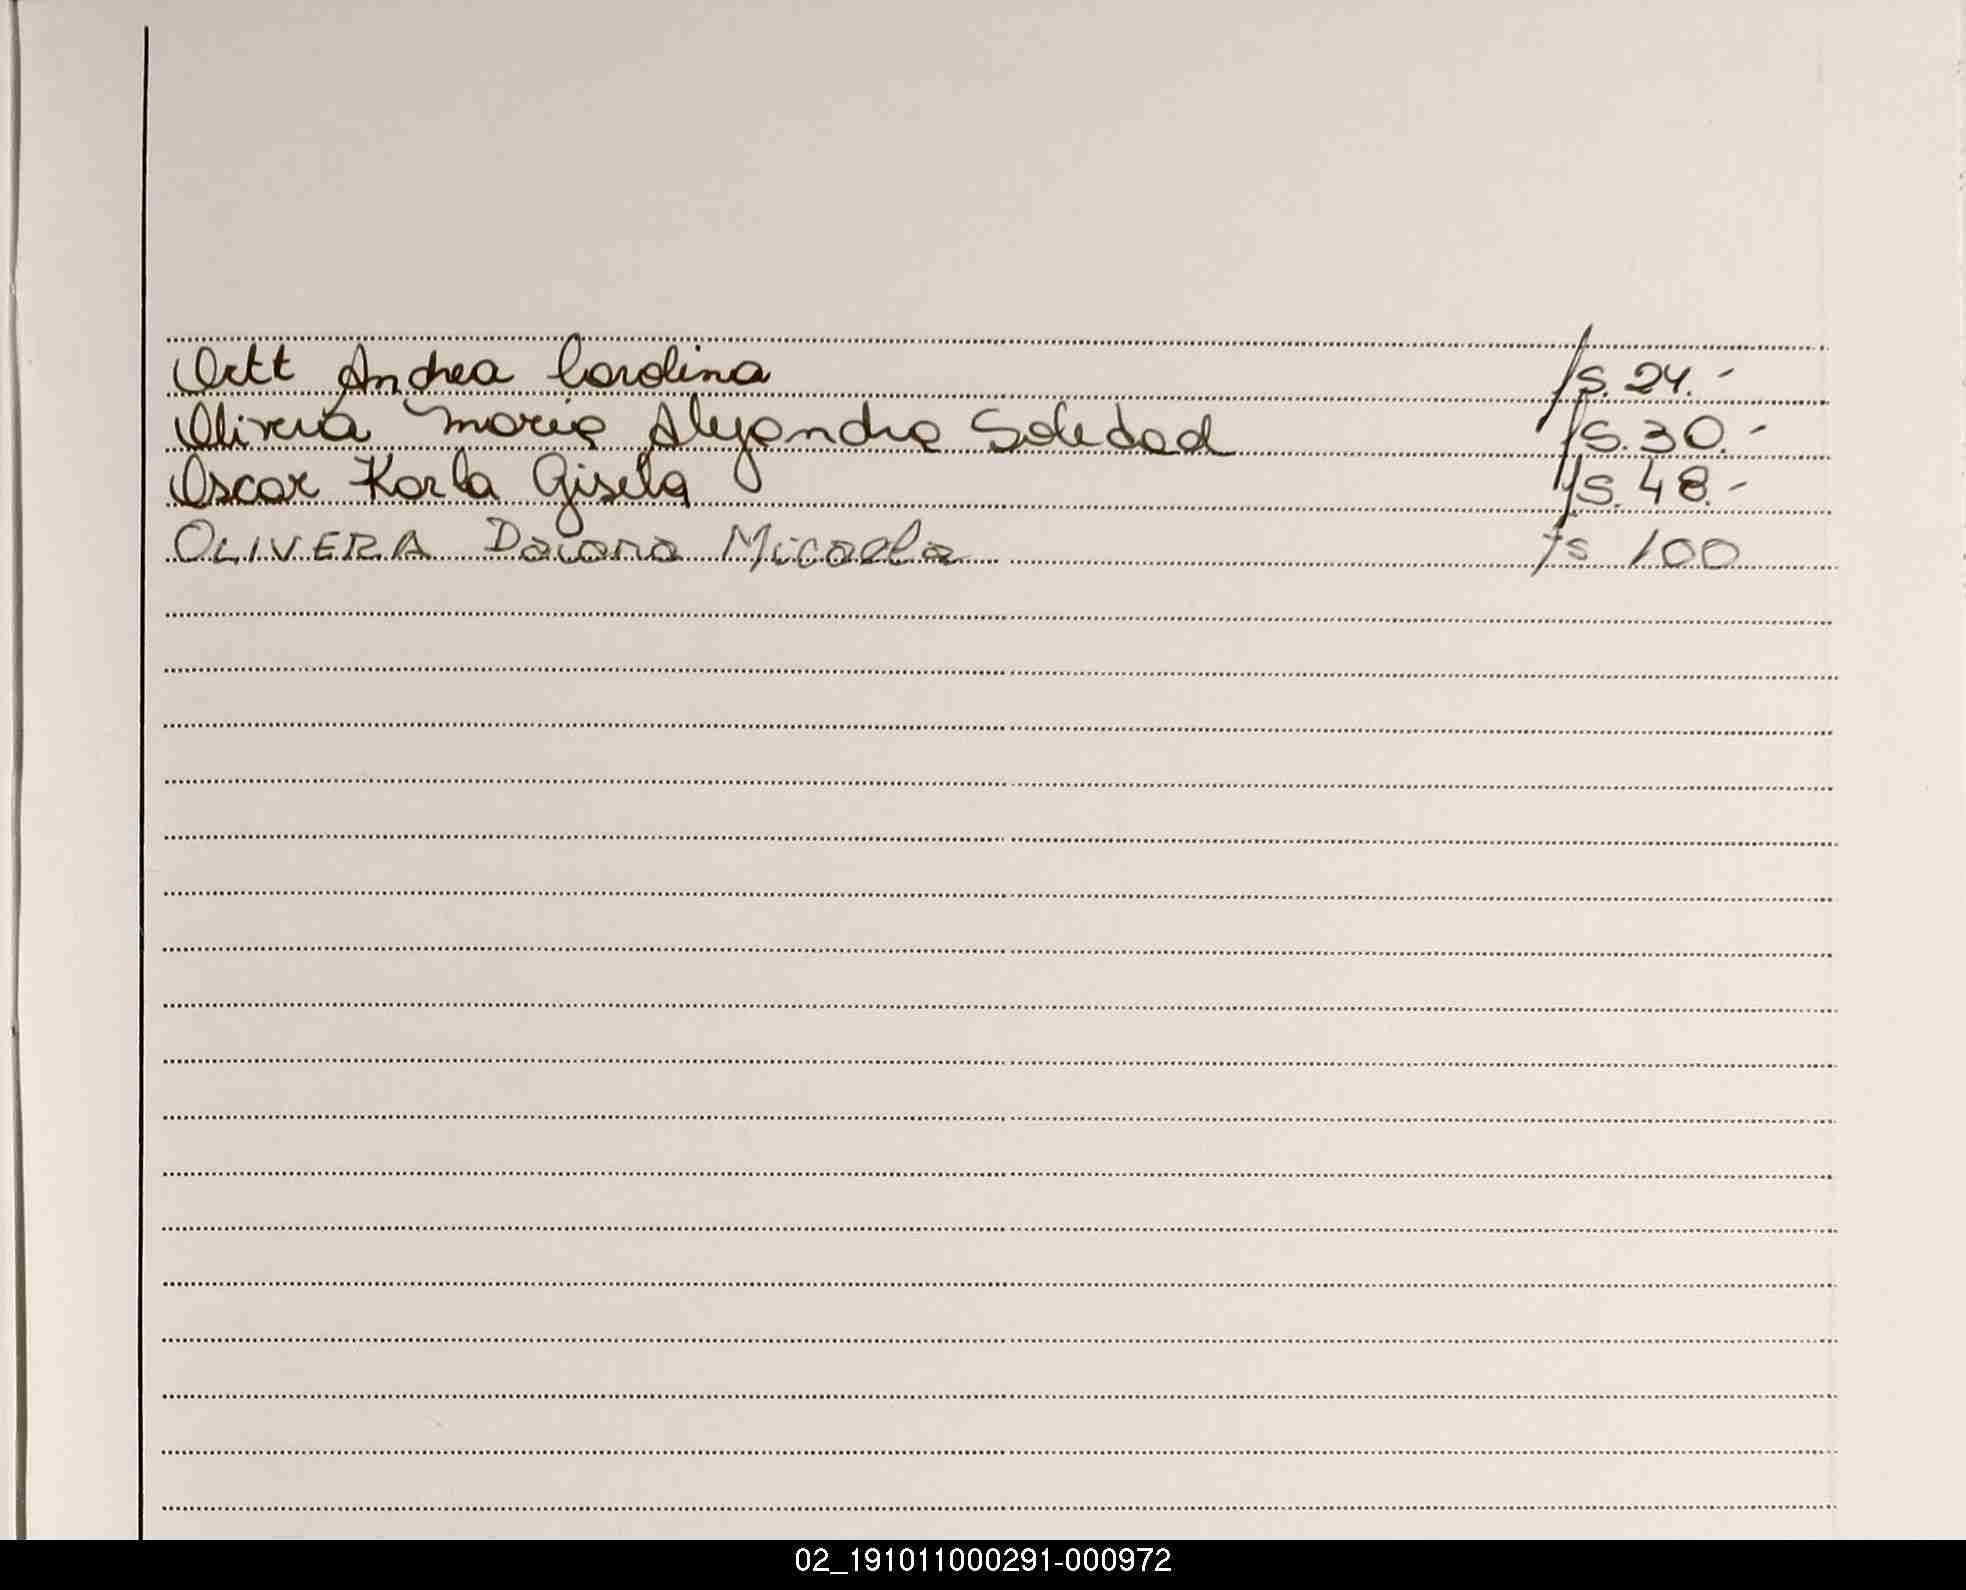 Ortt Andrea Carolina fs. 24.-
Olivera Maria Alejandra Soledad fs. 30.-
Oscar Karla Gisela fs. 48.-
OLIVERA Daiana Micaela fs 100
02_191011000291-000972